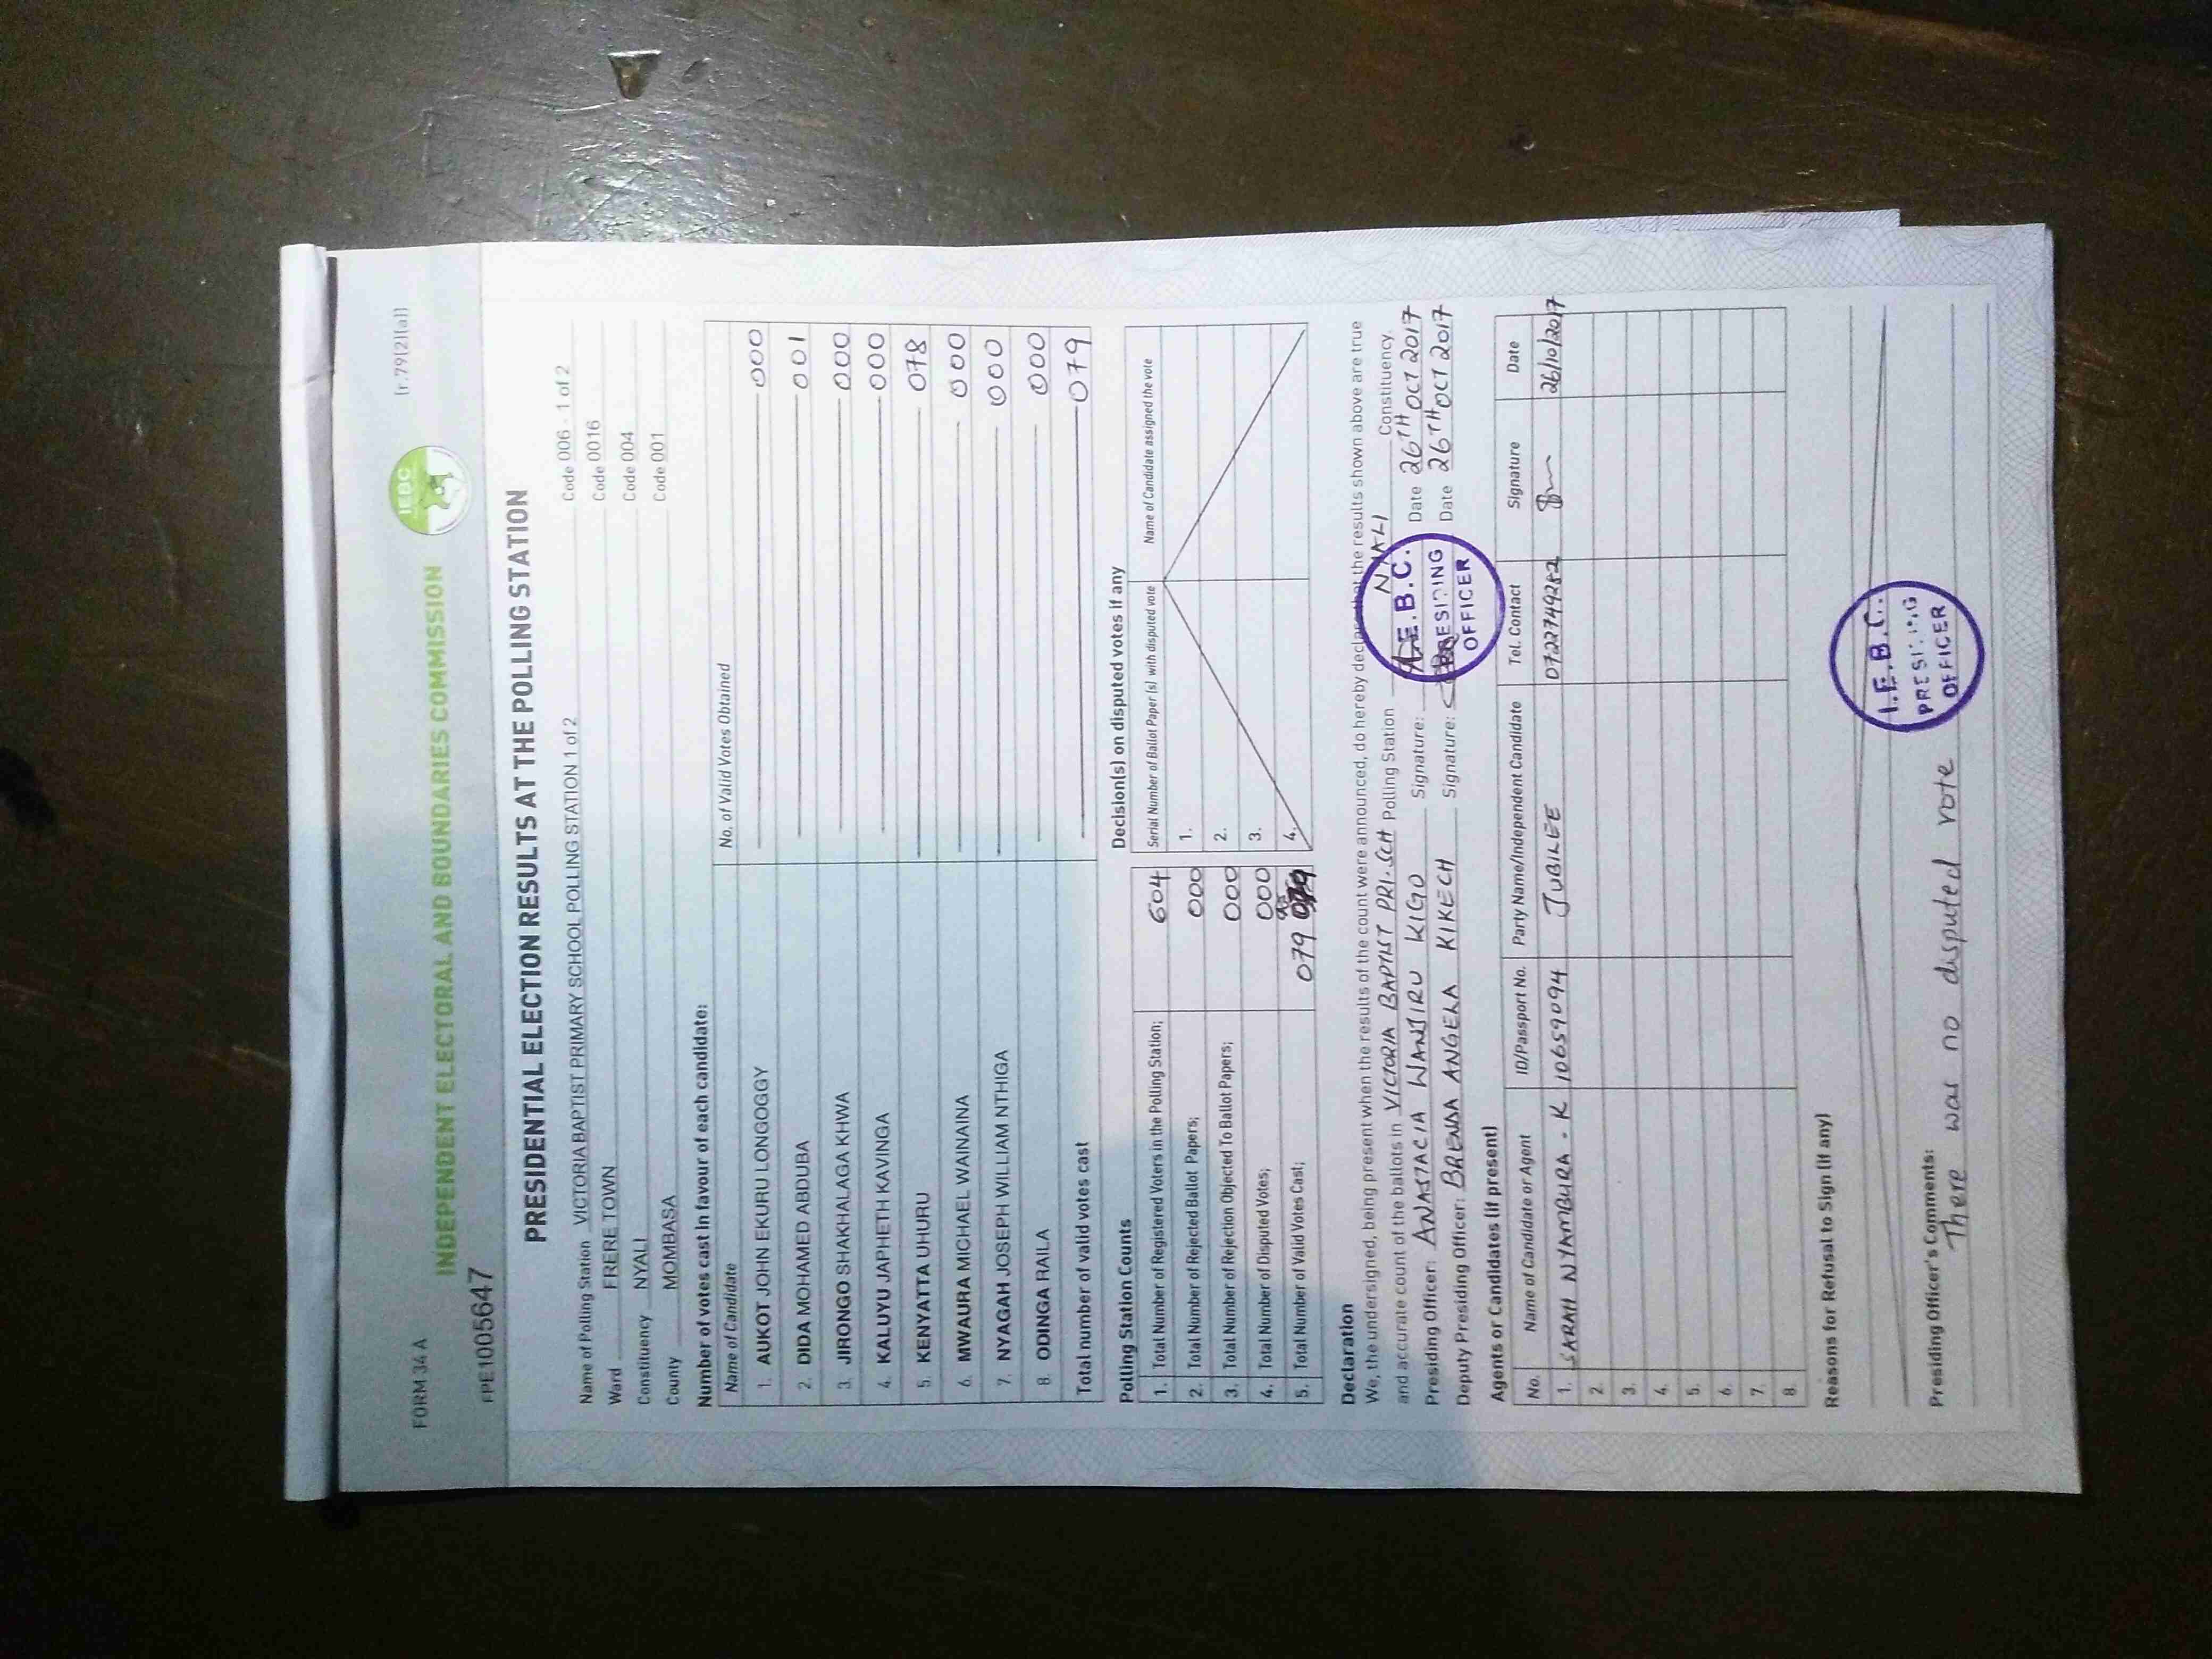 FORM 34 A
(r.79(2)(a))
IEBC
INDEPENDENT ELECTORAL AND BOUNDARIES COMMISSION
FPE1005647
PRESIDENTIAL ELECTION RESULTS AT THE POLLING STATION
Name of Polling Station VICTORIA BAPTIST PRIMARY SCHOOL POLLING STATION 1 of 2 Code 006 - 1 of 2
Ward FRERE TOWN Code 0016
Constituency NYALI Code 004
County MOMBASA Code 001
Number of votes cast in favour of each candidate:
Name of Candidate No. of Valid Votes Obtained
1. AUKOT JOHN EKURU LONGOGGY 000
2. DIDA MOHAMED ABDUBA 001
3. JIRONGO SHAKHALAGA KHWA 000
4. KALUYU JAPHETH KAVINGA 000
5. KENYATTA UHURU 078
6. MWAURA MICHAEL WAINAINA 000
7. NYAGAH JOSEPH WILLIAM NTHIGA 000
8. ODINGA RAILA 000
Total number of valid votes cast 079
Polling Station Counts
1. Total Number of Registered Voters in the Polling Station; 604
2. Total Number of Rejected Ballot Papers; 000
3. Total Number of Rejection Objected To Ballot Papers; 000
4. Total Number of Disputed Votes; 000
5. Total Number of Valid Votes Cast; 079
Decision(s) on disputed votes if any
Serial Number of Ballot Paper (s) with disputed vote Name of Candidate assigned the vote
1.
2.
3.
4.
Declaration
We, the undersigned, being present when the results of the count were announced, do hereby declare that the results shown above are true
and accurate count of the ballots in VICTORIA BAPTIST PRI. SCH Polling Station NYALI Constituency.
Presiding Officer: ANASTACIA WANJIRU KIGO Signature: Date 26TH OCT 2017
Deputy Presiding Officer: BRENDA ANGELA KIKECH Signature: Date 26TH OCT 2017
I.E.B.C.
PRESIDING
OFFICER
Agents or Candidates (if present)
No. Name of Candidate or Agent ID/Passport No. Party Name/Independent Candidate Tel. Contact Signature Date
1. SARAH NYAMBURA - K 10659094 JUBILEE 0722749282 26/10/2017
2.
3.
4.
5.
6.
7.
8.
Reasons for Refusal to Sign (if any)
Presiding Officer's Comments:
There was no disputed vote
I.E.B.C.
PRESIDING
OFFICER